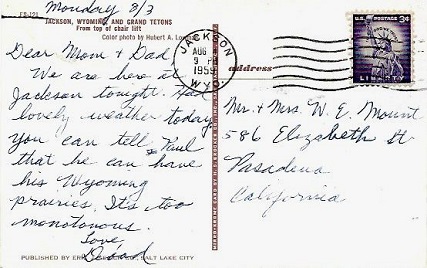 Monday 8/3
FS-121
JACKSON, WYOMING AND GRAND TETONS
From top of chair lift
Color photo by Hubert A.
Dear Mom & Dad,
We are here at
Jackson tonight. Had
lovely weather today.
You can tell Paul
that he can have
his Wyoming
prairies. It's too
monotonous.
Love,
PUBLISHED BY SALT LAKE CITY
address
JACKSON
AUG
9
1959
WYO.
U.S. POSTAGE 3¢
LIBERTY
Mr. & Mrs. W. E. Mount
586 Elizabeth St
Pasadena
California